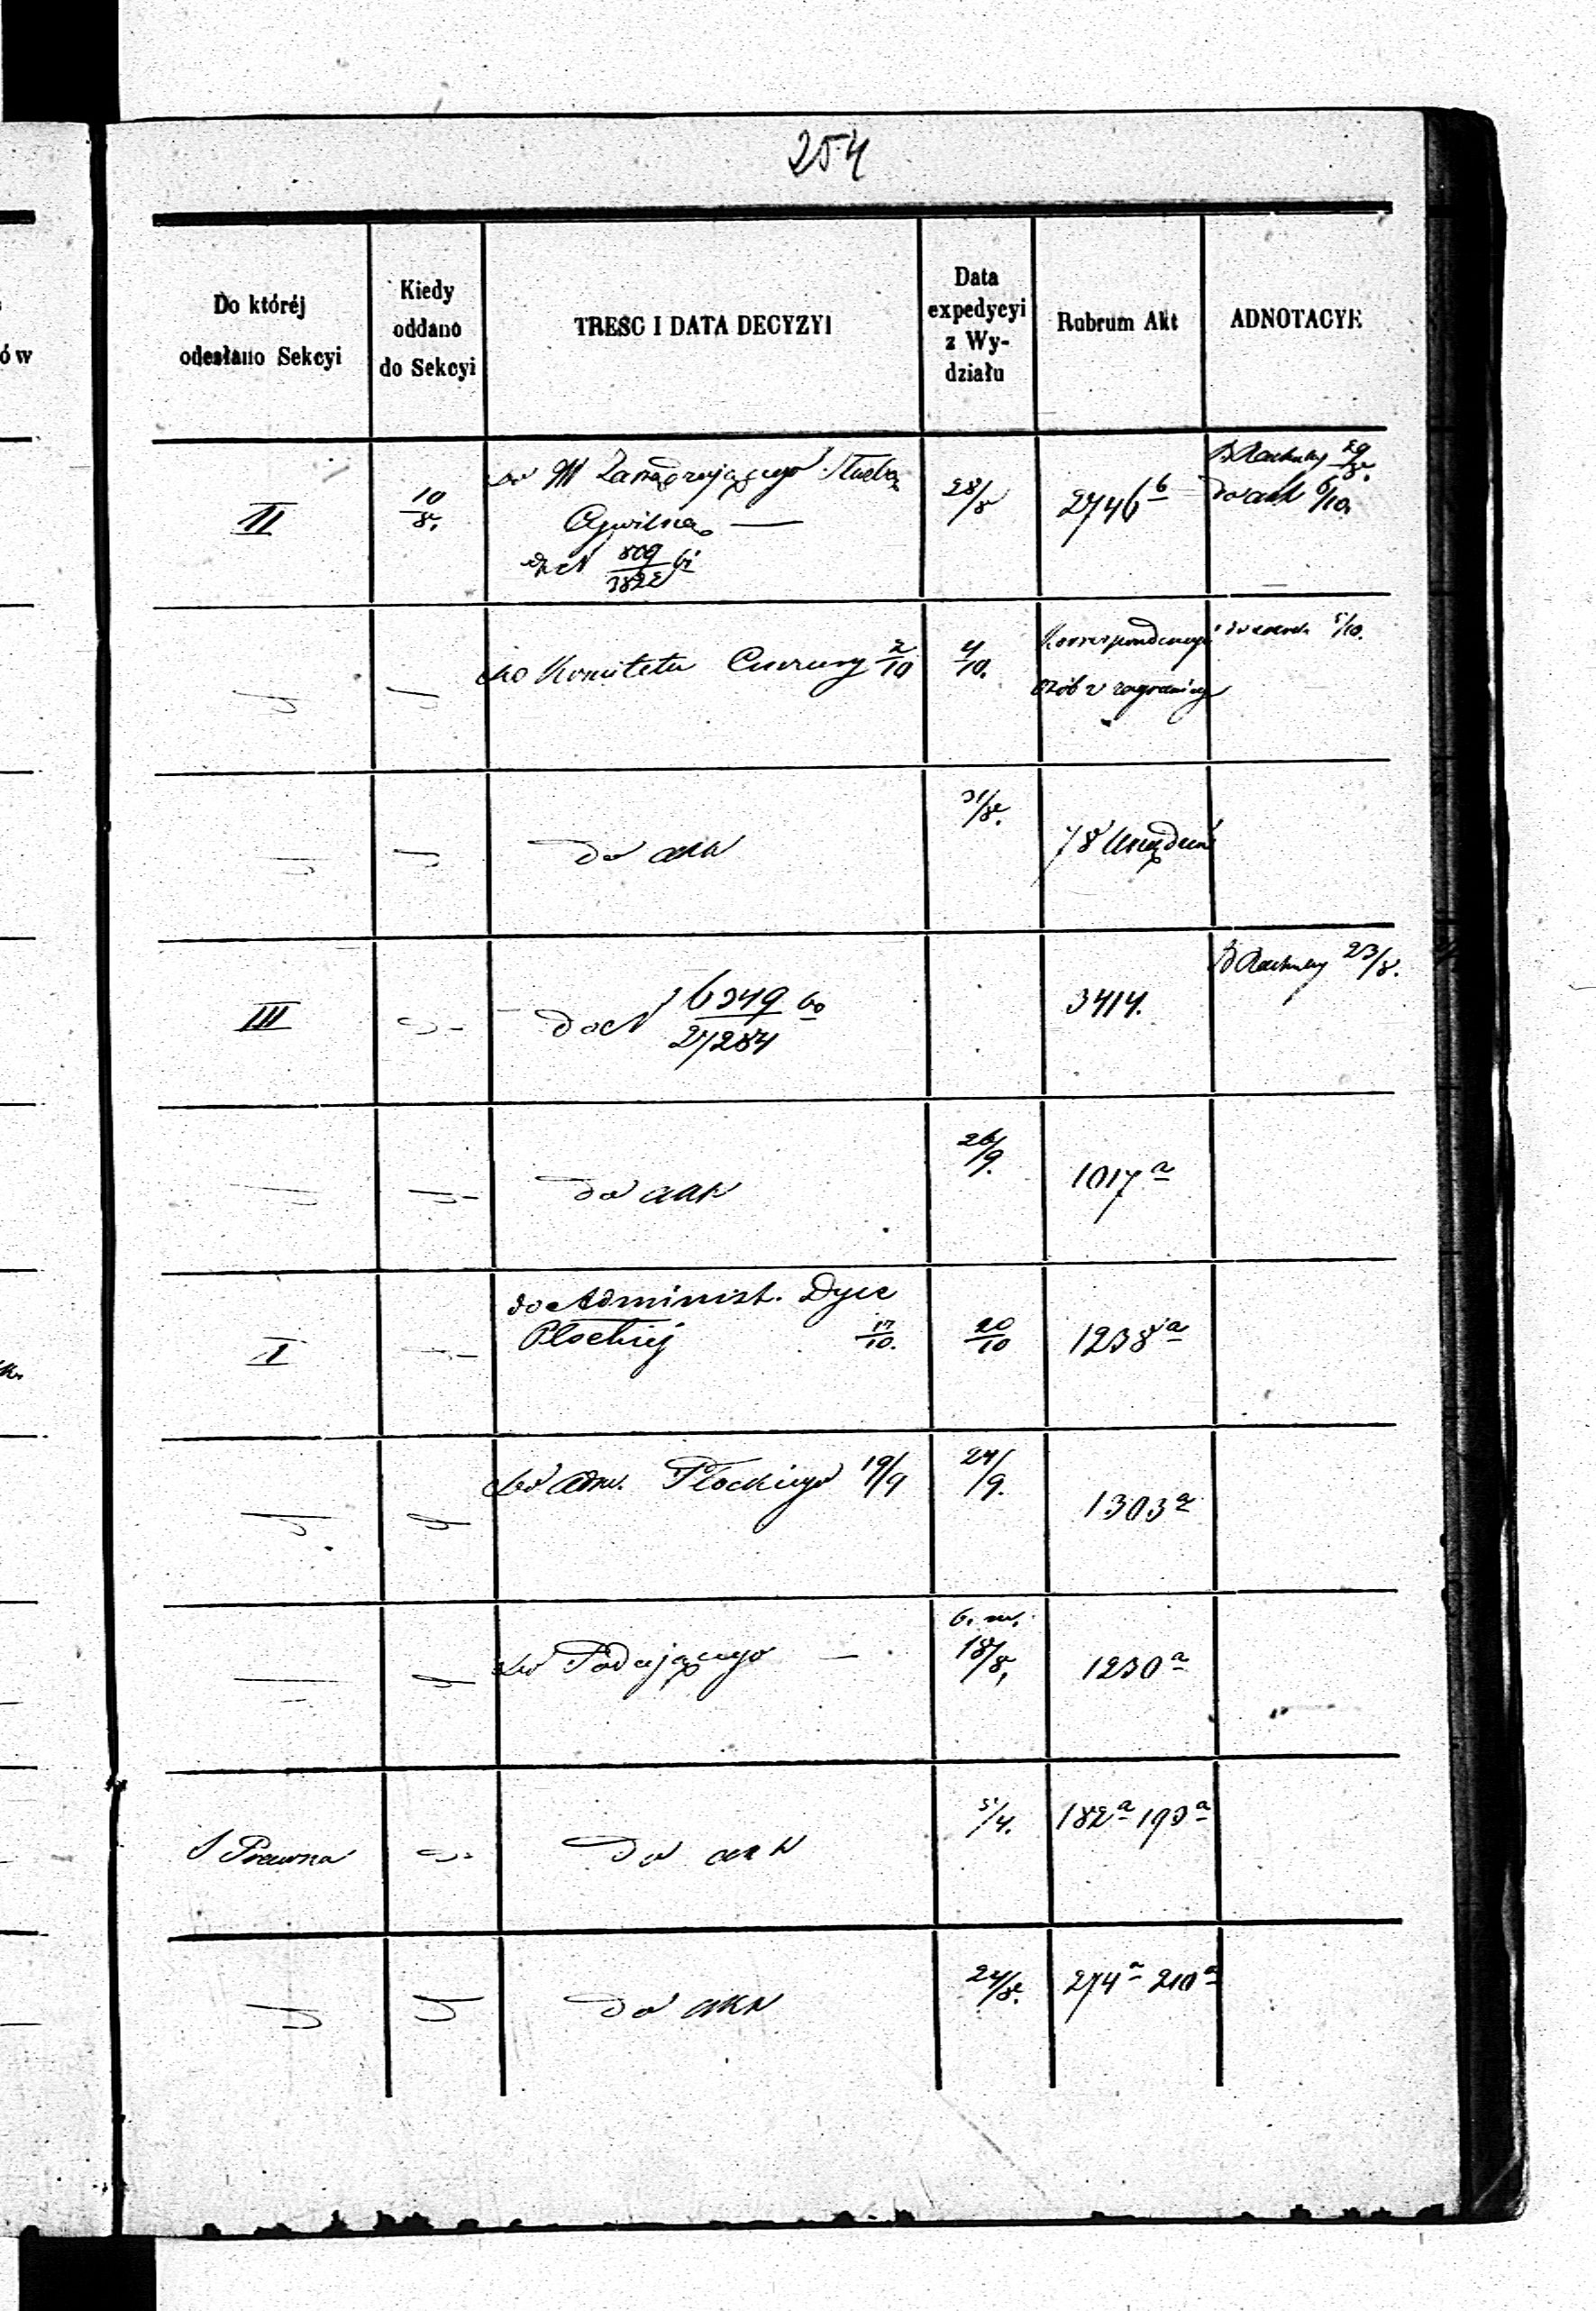 254
Do któréj
odesłano Sekcyi
Kiedy
oddano
do Sekcyi
TREŚĆ I DATA DECYZYI
Data
expedycyi
z Wy-
działu
Rubrum Akt
ADNOTACYE
ów
II
10/8.
do M Zawiadującego Służbą
Cywilną —
809/3822
28/8
2746 b
B Rachuby 29/8.
do akt 6/10.
do Komitetu Cenzury 2/10
4/10.
Korrespondencyi
osób z zagranicy
5/10.
do akt
31/8.
78 Urzędnik
III
do N 16349/27284
3414.
B Rachuby 23/8.
do akt
26/9.
1017 a
I
do Administ. Dyec
Płockiéj 17/10.
20/10
1238 a
do Adm. Płockiego 19/9
24/9.
1303 a
do Podającego —
b. m.
18/8.
1230 a
S Prawna
do akt
5/4.
182 a 193 a
do akt
24/8.
274 a 210 a